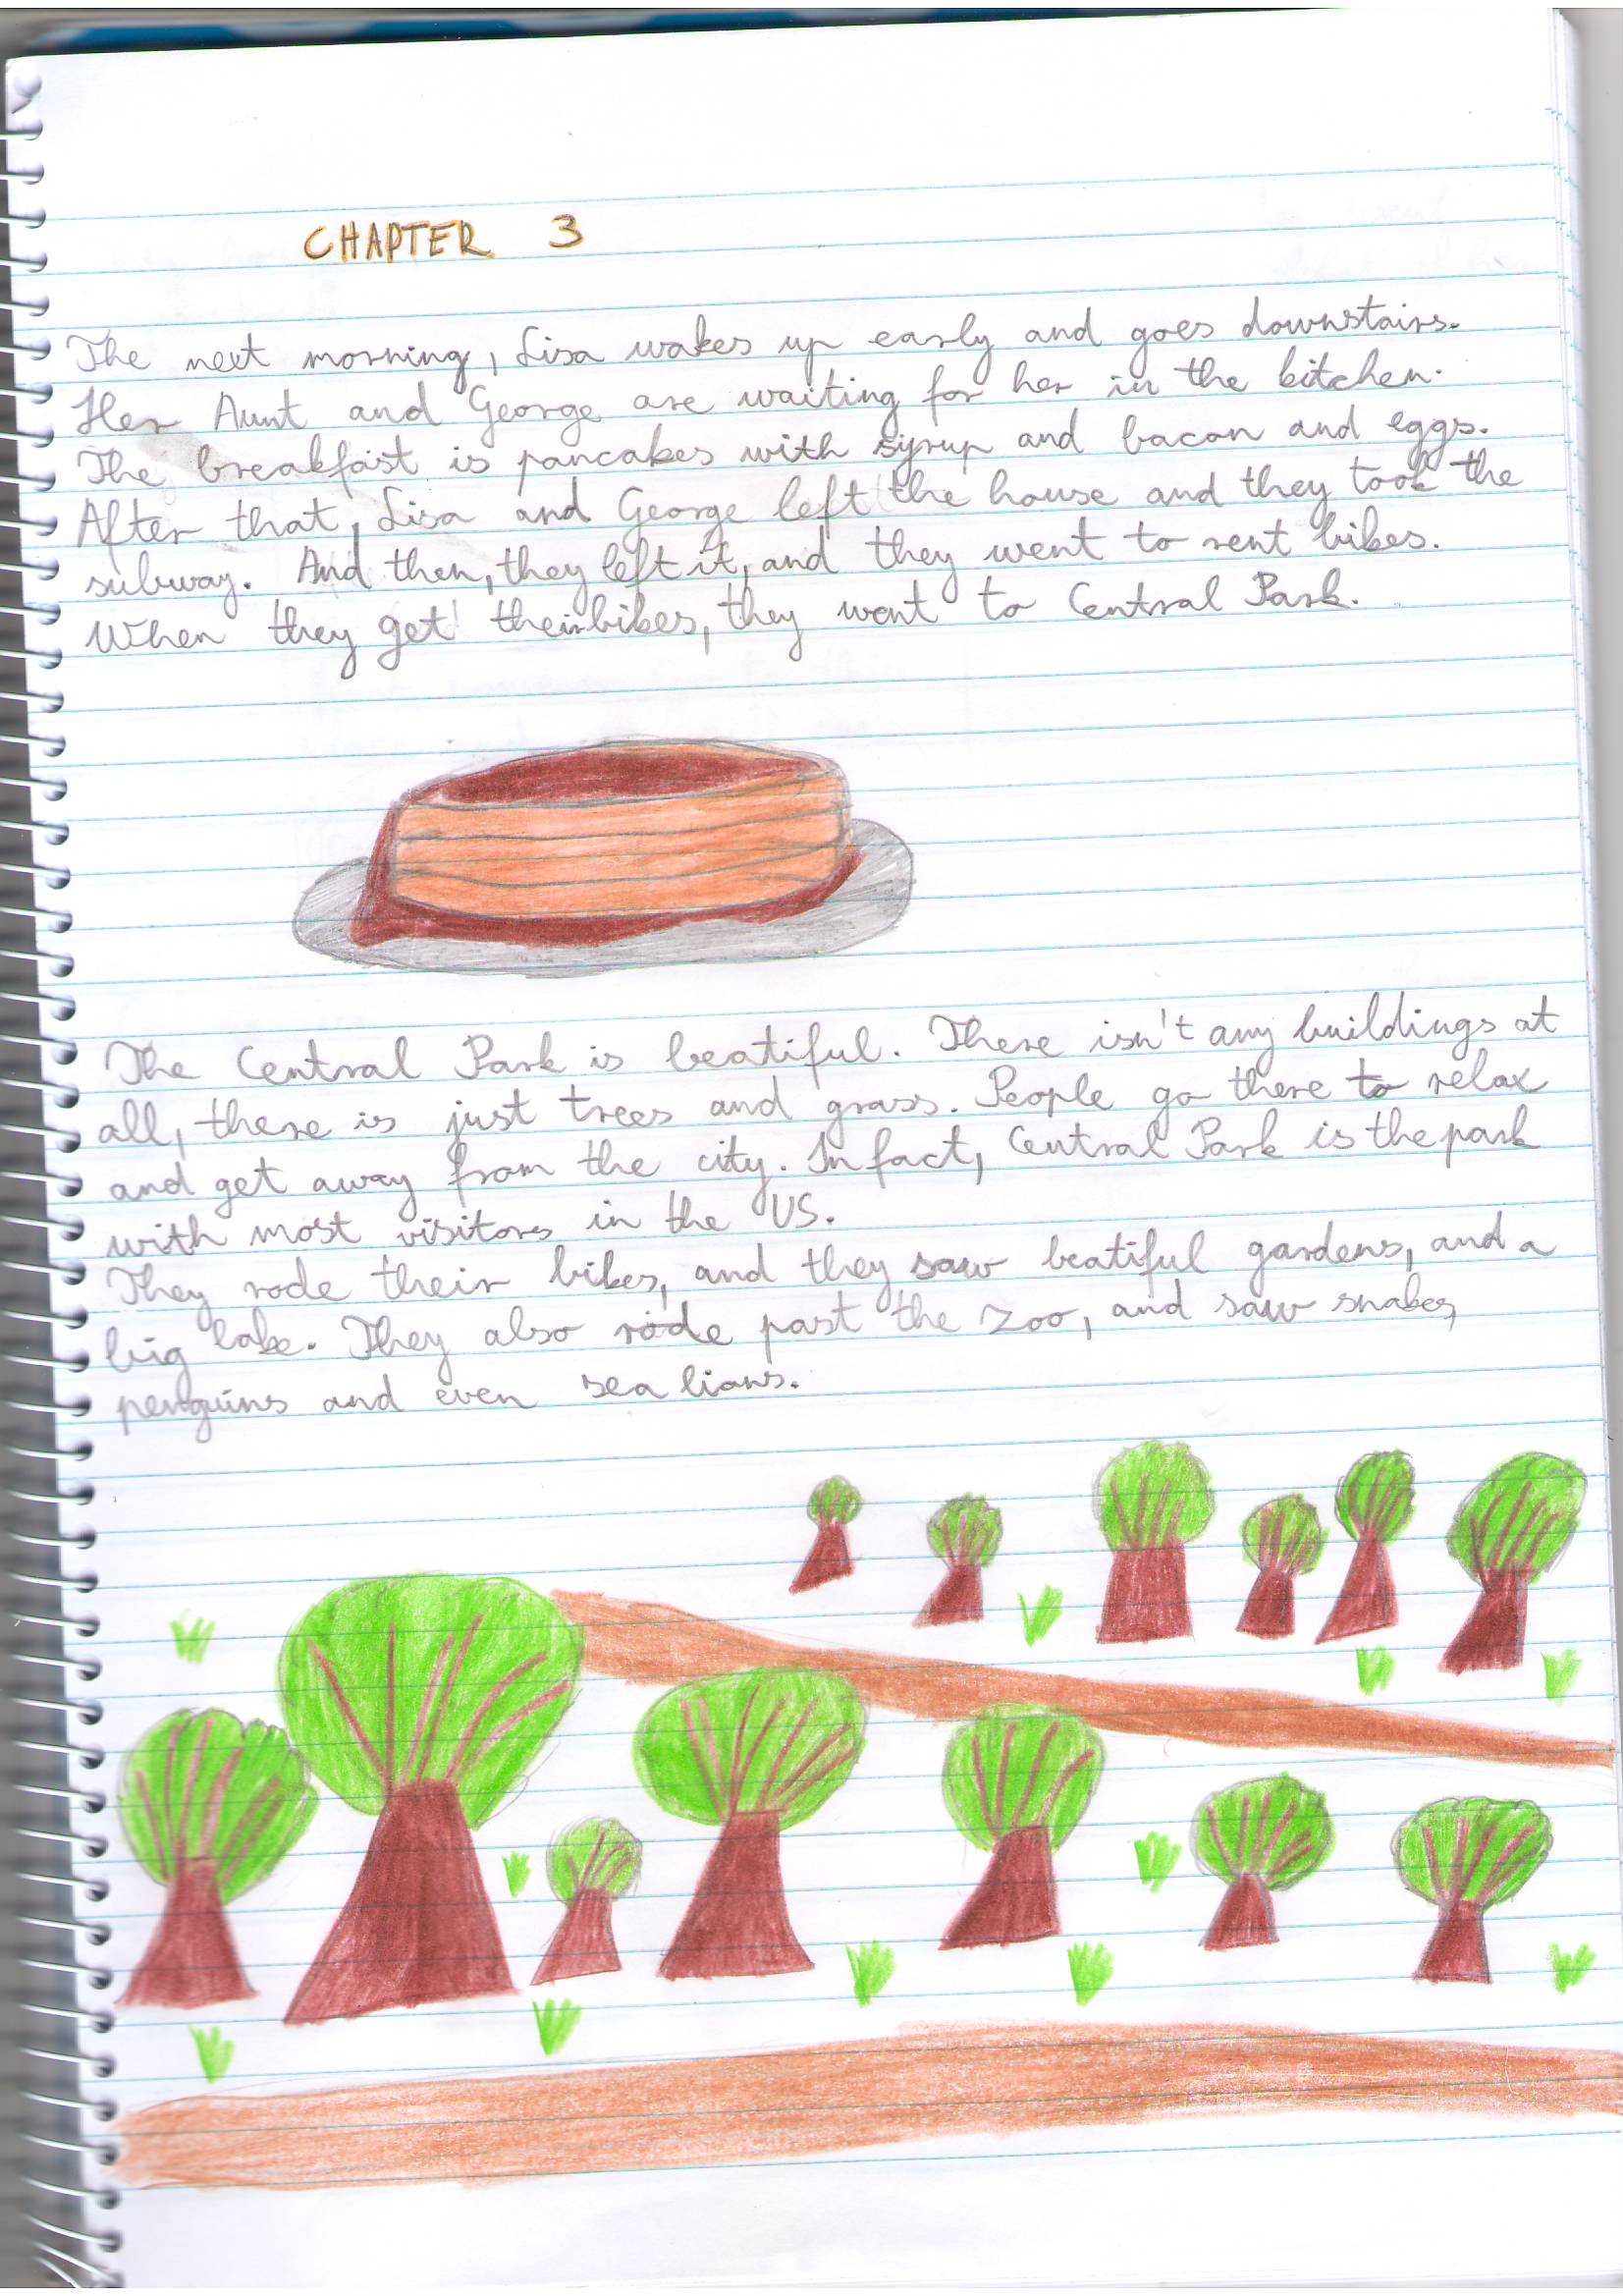 CHAPTER 3
The next morning, Lisa wakes up early and goes downstairs.
Her Aunt and George are waiting for her in the kitchen.
The breakfast is pancakes with syrup and bacon and eggs.
After that, Lisa and George left the house and they took the
subway. And then, they left it, and they went to rent bikes.
When they get their bikes, they went to Central Park.
The Central Park is beatiful. There isn't any buildings at
all, there is just trees and grass. People go there to relax
and get away from the city. In fact, Central Park is the park
with most visitors in the US.
They rode their bikes, and they saw beatiful gardens, and a
big lake. They also rode past the zoo, and saw snakes,
penguins and even sea lions.